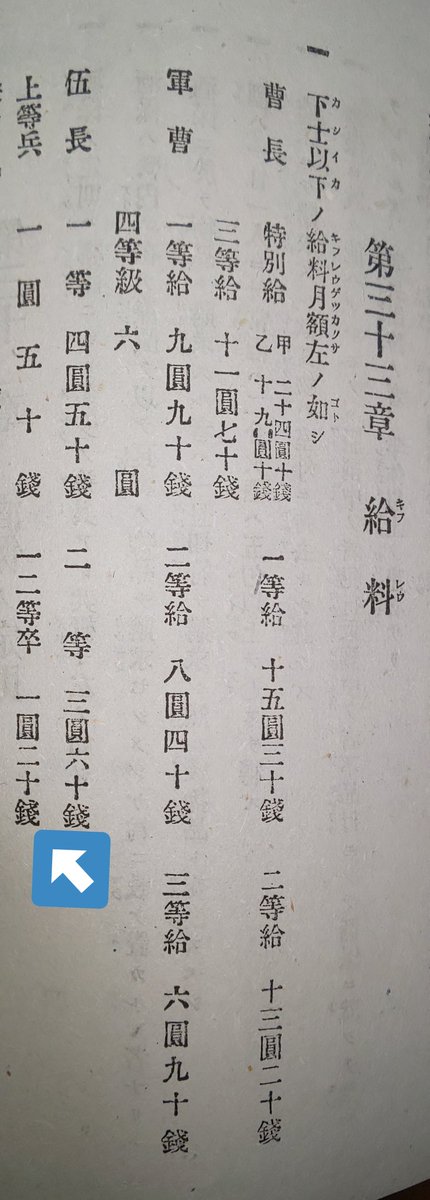 第三十三章 給料
キフ レウ
一 下士以下ノ給料月額左ノ如シ
カシイカ キフレウゲツカクサ ゴト
曹長 特別給 甲 二十四圓十錢 乙 十九圓十錢 一等給 十五圓三十錢 二等給 十三圓二十錢
三等給 十一圓七十錢
軍曹 一等給 九圓九十錢 二等給 八圓四十錢 三等給 六圓九十錢
四等級 六圓
伍長 一等 四圓五十錢 二等 三圓六十錢
上等兵 一圓五十錢 一二等卒 一圓二十錢